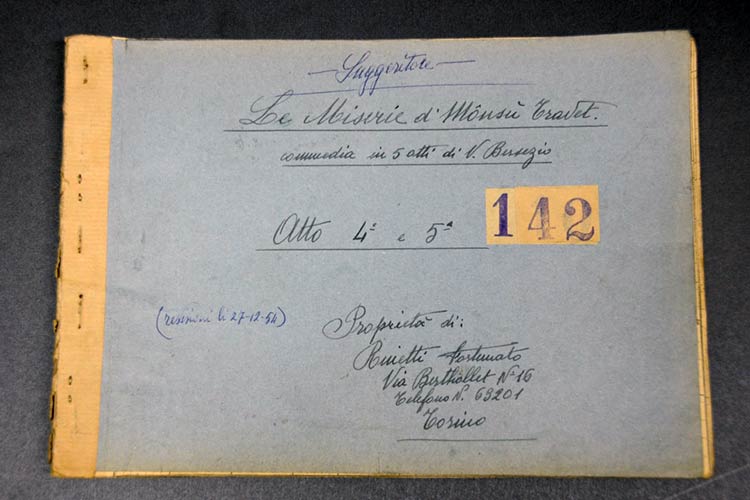 Suggeritore
Le Miserie d' Mônsù Travet.
commedia in 5 atti di V. Bersezio
Atto 4º e 5º
142
(revisioni li 27-12-54)
Proprietà di:
Fortunato
Via Berthollet Nº 16
Telefono N. 69201
Torino